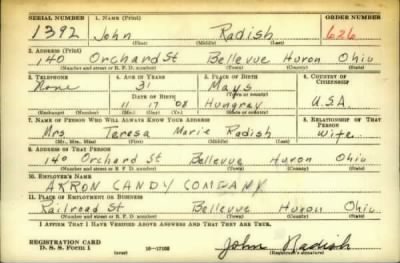 SERIAL NUMBER 1. NAME (Print) ORDER NUMBER
1392 John Radish 626
(First) (Middle) (Last)
2. ADDRESS (Print)
140 Orchard St Bellevue Huron Ohio
(Number and street or R. F. D. number) (Town) (County) (State)
3. TELEPHONE 4. AGE IN YEARS 5. PLACE OF BIRTH 6. COUNTRY OF CITIZENSHIP
None 31 Mays
DATE OF BIRTH (Town or county)
11 17 08 Hungray U.S.A.
(Exchange) (Number) (Mo.) (Day) (Yr.) (State or country)
7. NAME OF PERSON WHO WILL ALWAYS KNOW YOUR ADDRESS 8. RELATIONSHIP OF THAT PERSON
Mrs Teresa Marie Radish Wife.
(Mr., Mrs., Miss) (First) (Middle) (Last)
9. ADDRESS OF THAT PERSON
140 Orchard St Bellevue Huron Ohio
(Number and street or R. F. D. number) (Town) (County) (State)
10. EMPLOYER'S NAME
AKRON CANDY COMPANY
11. PLACE OF EMPLOYMENT OR BUSINESS
Railroad St Bellevue Huron Ohio
(Number and street or R. F. D. number) (Town) (County) (State)
I AFFIRM THAT I HAVE VERIFIED ABOVE ANSWERS AND THAT THEY ARE TRUE.
REGISTRATION CARD
D. S. S. Form 1 (over) 16-17105 John Radish
(Registrant's signature)